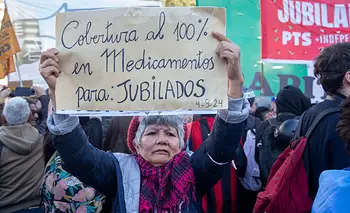 Cobertura al 100%
en Medicamentos
para: JUBILADOS
4-9-24
JUBIL
PTS